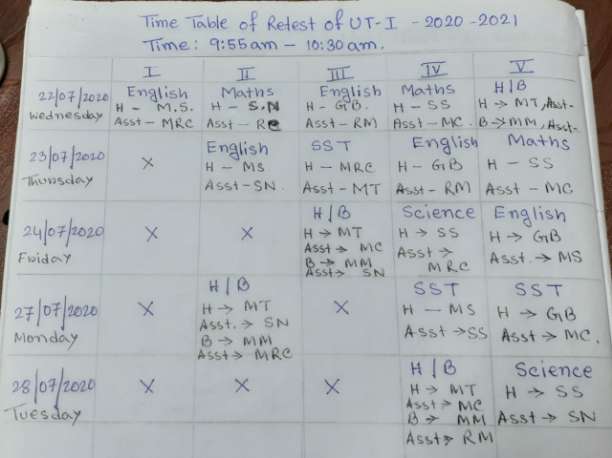 Time Table of Retest of UT-I - 2020-2021
Time: 9:55am - 10:30am.
I II III IV V
22/07/2020 Wednesday
English
H - M.S.
Asst - MRC
Maths
H - S.N
Asst - RC
English
H - GB.
Asst - RM
Maths
H - SS
Asst - MC.
H|B
H → MT, Asst-
B → MM, Asst-
23/07/2020 Thursday
X
English
H - MS
Asst - SN.
SST
H - MRC
Asst - MT
English
H - GB
Asst - RM
Maths
H - SS
Asst - MC
24/07/2020 Friday
X
X
H|B
H → MT
Asst → MC
B → MM
Asst → SN
Science
H → SS
Asst →
MRC
English
H → GB
Asst. → MS
27/07/2020 Monday
X
H|B
H → MT
Asst. → SN
B → MM
Asst → MRC
X
SST
H - MS
Asst → SS
SST
H → GB
Asst → MC.
28/07/2020 Tuesday
X
X
X
H|B
H → MT
Asst → MC
B → MM
Asst → RM
Science
H → SS
Asst → SN